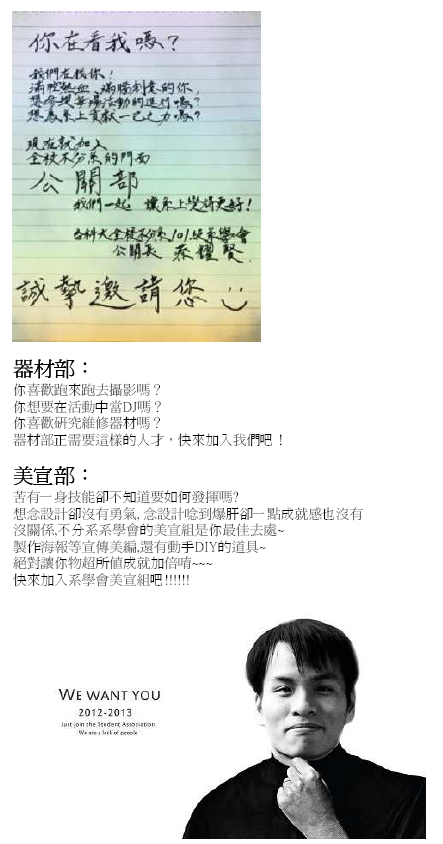 你在看我嗎？
我們在找你！
滿腔熱血、滿腦創意的你，
想參與各項活動的進行嗎？
想為系上貢獻一己之力嗎？
現在就加入
全校不分系的門面
公關部
我們一起 讓系上變得更好！
台科大全校不分系101級系學會
公關長 秦耀賢
誠摯邀請您
器材部：
你喜歡跑來跑去攝影嗎？
你想要在活動中當DJ嗎？
你喜歡研究維修器材嗎？
器材部正需要這樣的人才，快來加入我們吧！
美宣部：
苦有一身技能卻不知道要如何發揮嗎?
想念設計卻沒有勇氣, 念設計唸到爆肝卻一點成就感也沒有
沒關係,不分系系學會的美宣組是你最佳去處~
製作海報等宣傳美編,還有動手DIY的道具~
絕對讓你物超所值成就加倍唷~~~
快來加入系學會美宣組吧!!!!!!
WE WANT YOU
2012-2013
Just join the Student Association
We are a lack of people